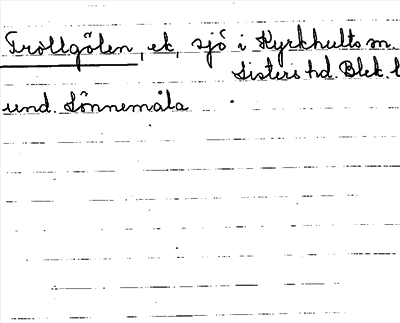 Trollgölen, ek, sjö i Kyrkhults sn.
Listers hd. Blek. l
und. Lönnemåla